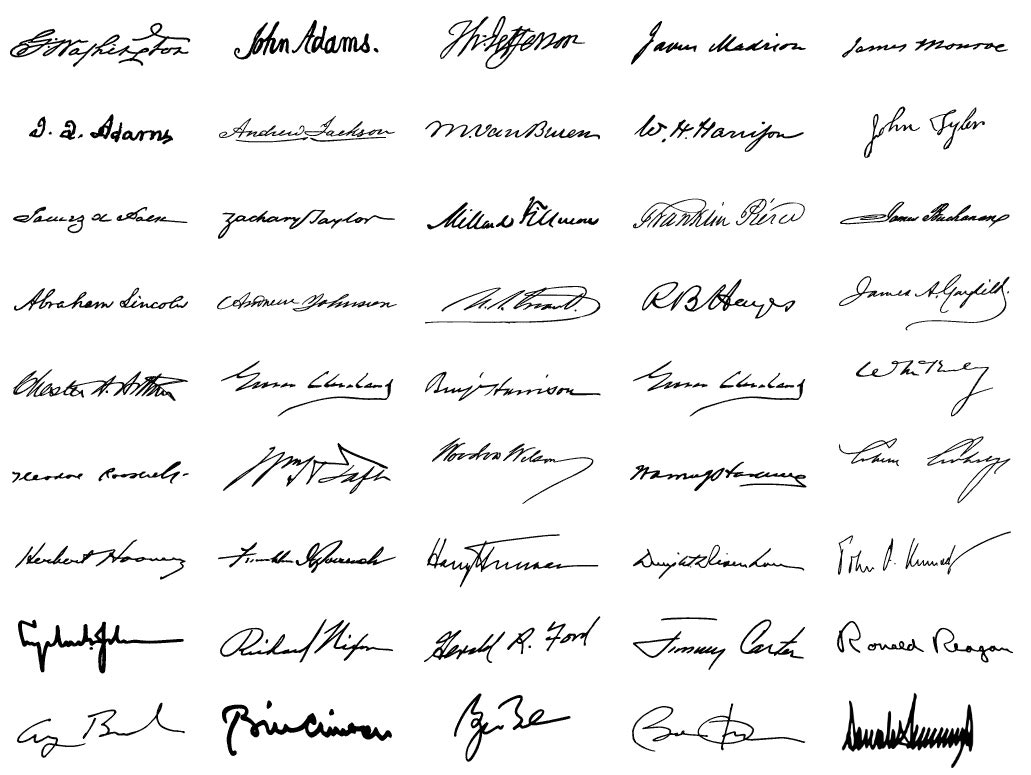 G Washington John Adams. Th Jefferson James Madison James Monroe
J. Q. Adams Andrew Jackson M. Van Buren W. H. Harrison John Tyler
James K Polk Zachary Taylor Millard Fillmore Franklin Pierce James Buchanan
Abraham Lincoln Andrew Johnson U. S. Grant. R B Hayes James A. Garfield.
Chester A. Arthur Grover Cleveland Benj Harrison Grover Cleveland Wm McKinley
Theodore Roosevelt Wm H Taft Woodrow Wilson Warren G Harding Calvin Coolidge
Herbert Hoover Franklin D Roosevelt Harry Truman Dwight D Eisenhower John F. Kennedy
Lyndon B. Johnson Richard Nixon Gerald R. Ford Jimmy Carter Ronald Reagan
G Bush Bill Clinton G Bush Barack Obama Donald Trump